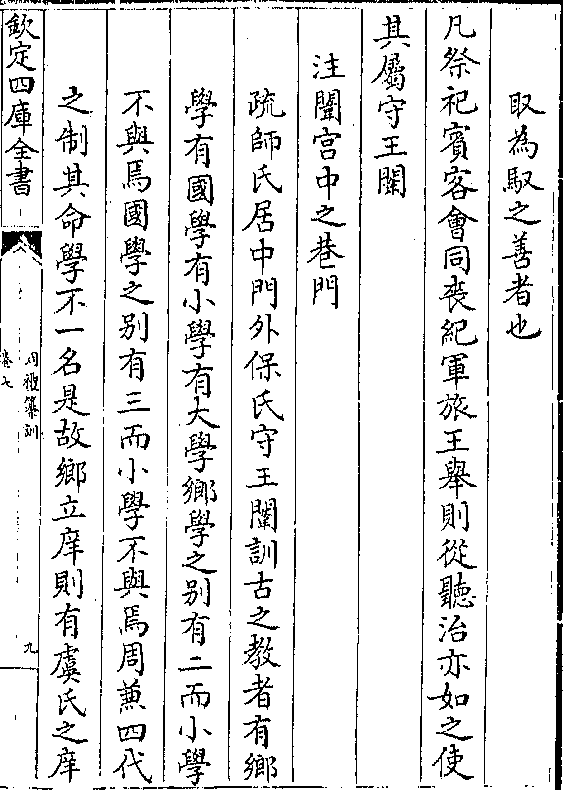 取為馭之善者也
凡祭祀賓客會同喪紀軍旅王舉則從聽治亦如之使
其屬守王闈
注闈宫中之巷門
疏師氏居中門外保氏守王闈訓古之教者有鄉
學有國學有小學有大學鄉學之别有二而小學
不與焉國學之别有三而小學不與焉周兼四代
之制其命學不一名是故鄉立庠則有虞氏之庠
欽定四庫全書
周禮纂訓
卷七
九